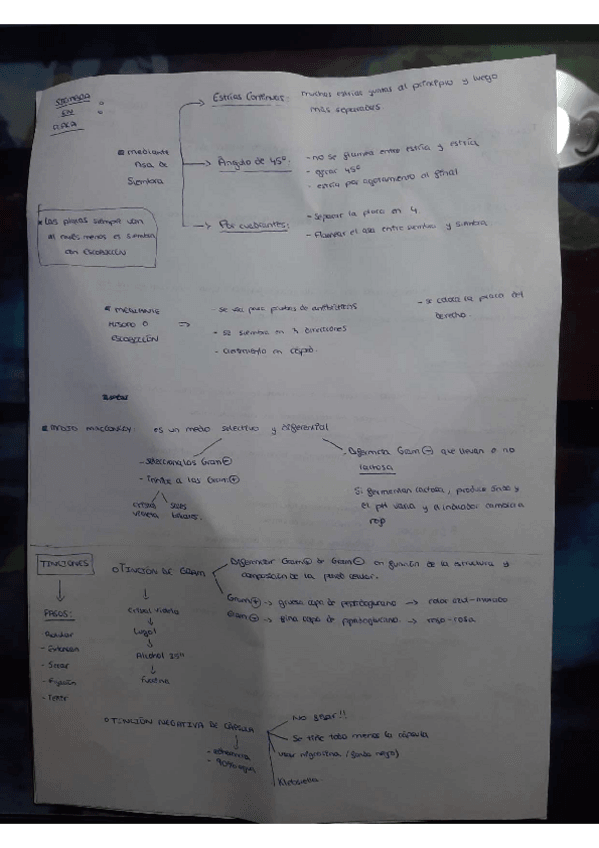 SIEMBRA
EN
PLACA
mediante
Asa de
Siembra
Estrías Continuas: muchas estrías juntas al principio y luego
más separadas.
Ángulo de 45º:
- no se flamea entre estría y estría
- girar 45º
- estría por agotamiento al final
Por cuadrantes:
- Separar la placa en 4.
- Flamear el asa entre siembra y siembra
Las placas siempre van
al revés menos si siembra
con ESCOBILLÓN
MEDIANTE
HISOPO O
ESCOBILLÓN
⇒
- se usa para pruebas de antibióticos
- se siembra en 3 direcciones
- crecimiento en césped.
- se coloca la placa del
derecho.
MEDIO MACCONKEY: es un medio selectivo y diferencial
- selecciona los Gram ⊖
- Inhibe a los Gram ⊕
cristal violeta
sales biliares.
Diferencia Gram ⊖ que llevan o no
lactosa
Si fermentan lactosa, produce ácido y
el pH varía y el indicador cambia a
rojo
TINCIONES
PASOS:
Rotular
- Extensión
- Secar
- Fijación
- Teñir
TINCIÓN DE GRAM
Cristal violeta
Lugol
Alcohol
Fucsina
Diferenciar Gram ⊕ de Gram ⊖ en función de la estructura y
composición de la pared celular.
Gram ⊕ → gruesa capa de peptidoglucano → color azul-morado
Gram ⊖ → fina capa de peptidoglucano. → rojo-rosa
TINCIÓN NEGATIVA DE CÁPSULA
- adherencia
- 90% agua
No fijar!!
Se tiñe todo menos la cápsula
usar nigrosina (fondo negro)
Klebsiella